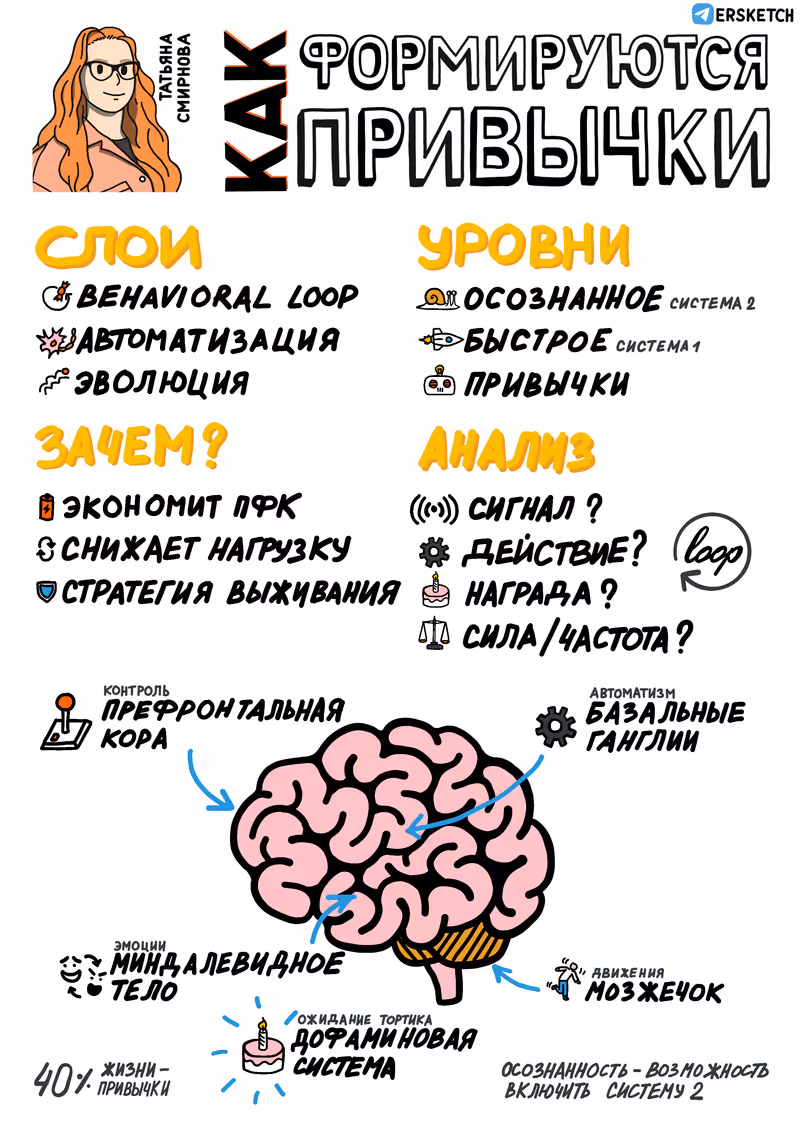 ERSKETCH
ТАТЬЯНА
СМИРНОВА
КАК
ФОРМИРУЮТСЯ
ПРИВЫЧКИ
СЛОИ
BEHAVIORAL LOOP
АВТОМАТИЗАЦИЯ
ЭВОЛЮЦИЯ
УРОВНИ
ОСОЗНАННОЕ СИСТЕМА 2
БЫСТРОЕ СИСТЕМА 1
ПРИВЫЧКИ
ЗАЧЕМ?
ЭКОНОМИТ ПФК
СНИЖАЕТ НАГРУЗКУ
СТРАТЕГИЯ ВЫЖИВАНИЯ
АНАЛИЗ
СИГНАЛ?
ДЕЙСТВИЕ?
НАГРАДА?
СИЛА/ЧАСТОТА?
loop
КОНТРОЛЬ
ПРЕФРОНТАЛЬНАЯ
КОРА
АВТОМАТИЗМ
БАЗАЛЬНЫЕ
ГАНГЛИИ
ЭМОЦИИ
МИНДАЛЕВИДНОЕ
ТЕЛО
ДВИЖЕНИЯ
МОЗЖЕЧОК
ОЖИДАНИЕ ТОРТИКА
ДОФАМИНОВАЯ
СИСТЕМА
40% ЖИЗНИ -
ПРИВЫЧКИ
ОСОЗНАННОСТЬ - ВОЗМОЖНОСТЬ
ВКЛЮЧИТЬ СИСТЕМУ 2